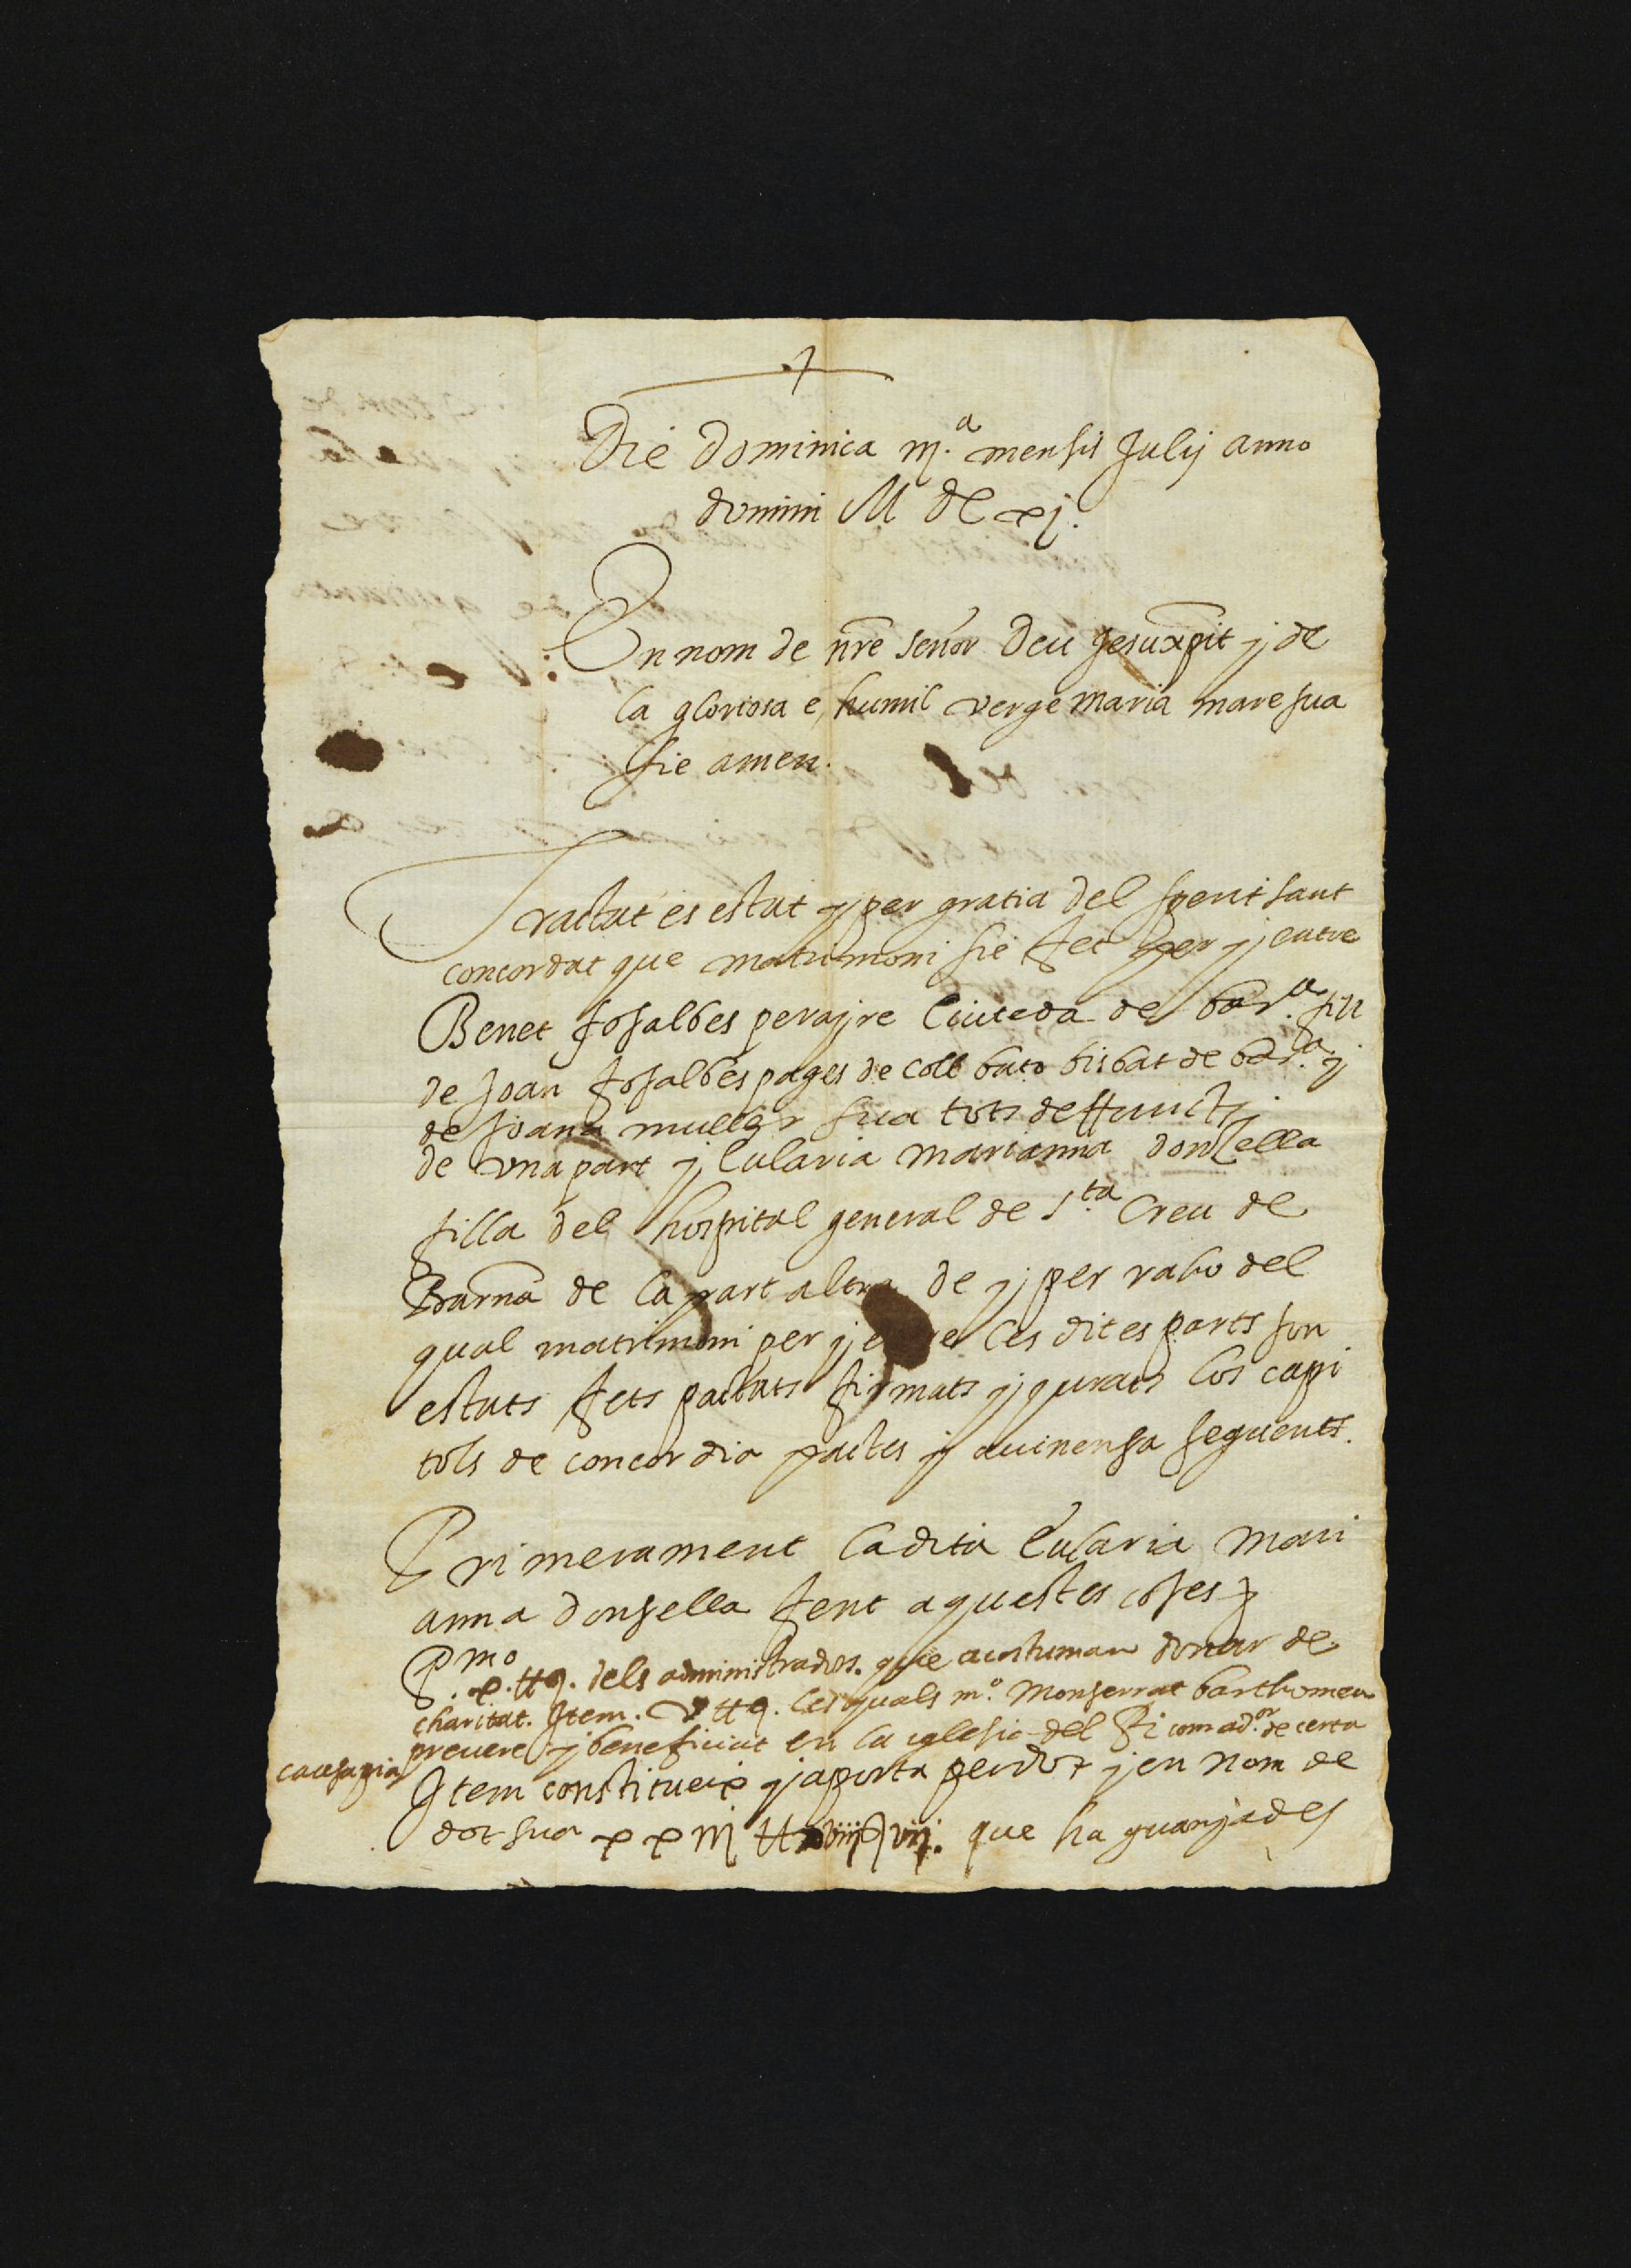 Die Dominica iij.ª mensis Julij anno
domini M DC xj.
En nom de nre señor Deu Jesuxpit y de
la gloriosa e humil verge maria mare sua
sie amen.
Tractat es estat y per gratia del sperit sant
concordat que matrimoni sie fet per y entre
Benet Josalbes perayre Ciuteda de bar.ª fill
de Joan Josalbes pages de coll bato bisbat de bar.ª y
de Joana muller sua tots deffuncts
de vna part y Eularia marianna donsella
filla del hospital general de s.ta Creu de
Barna de la part altra de y per raho del
qual matrimoni per y e re les dites parts son
estats fets pactats firmats y jurats los capi
tols de concordia pactes y auinensa seguents.
Primerament la dita Eularia Mari
anna donsella fent aquestes coses
P.mo
x. ℔. dels administradors. que acostuman donar de
charitat. Item. v ℔. les quals m.º Monserrat barthomeu
preuere y beneficiat en la iglesia del Pi com ad.or de certa
causa pia
Item constitueix y aporta per dot y en nom de
dot sua xxiij ℔ viij. que ha guanyades